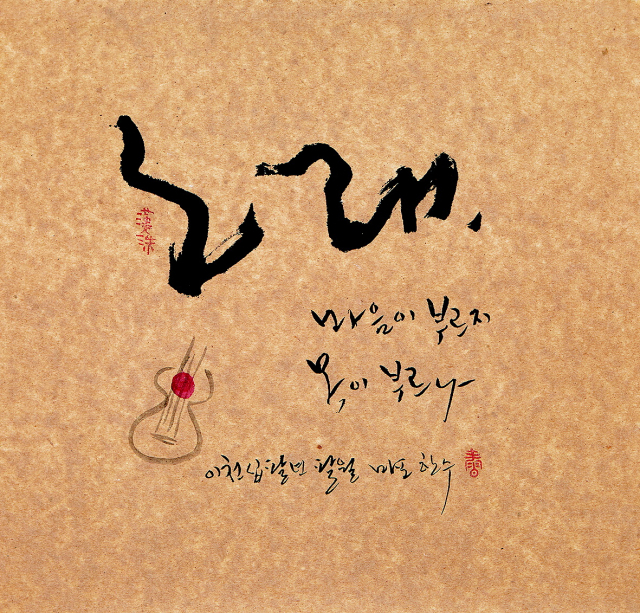 노래.
마음이 부르지
목이 부르나
이천십팔년 팔월 마포 한수